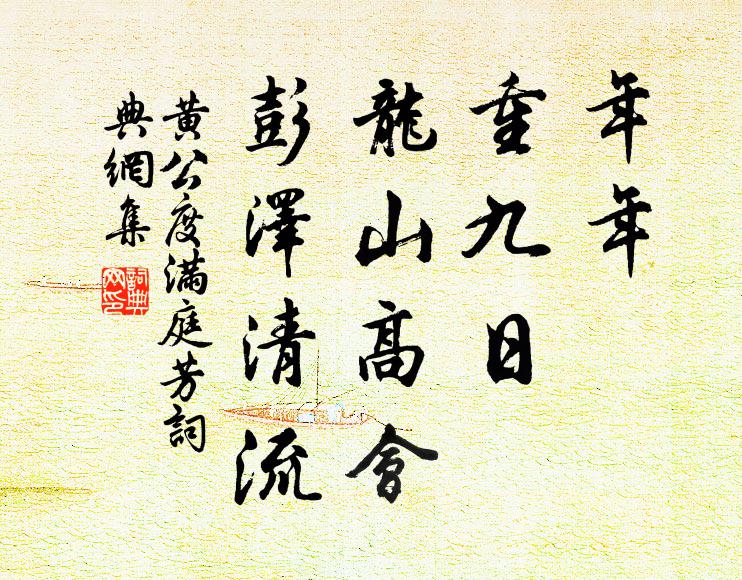 年年
重九日
龍山高會
彭澤清流
黃公度滿庭芳詞
典網集
詞典網印